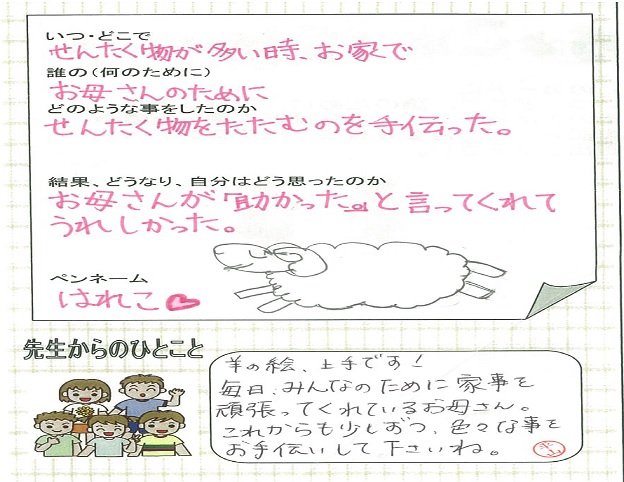 いつ・どこで
せんたく物が多い時、お家で
誰の(何のために)
お母さんのために
どのような事をしたのか
せんたく物をたたむのを手伝った。
結果、どうなり、自分はどう思ったのか
お母さんが「助かった。」と言ってくれて
うれしかった。
ペンネーム
はれこ
先生からのひとこと
羊の絵、上手です!
毎日、みんなのために家事を
頑張ってくれているお母さん。
これからも少しずつ、色々な事を
お手伝いして下さいね。